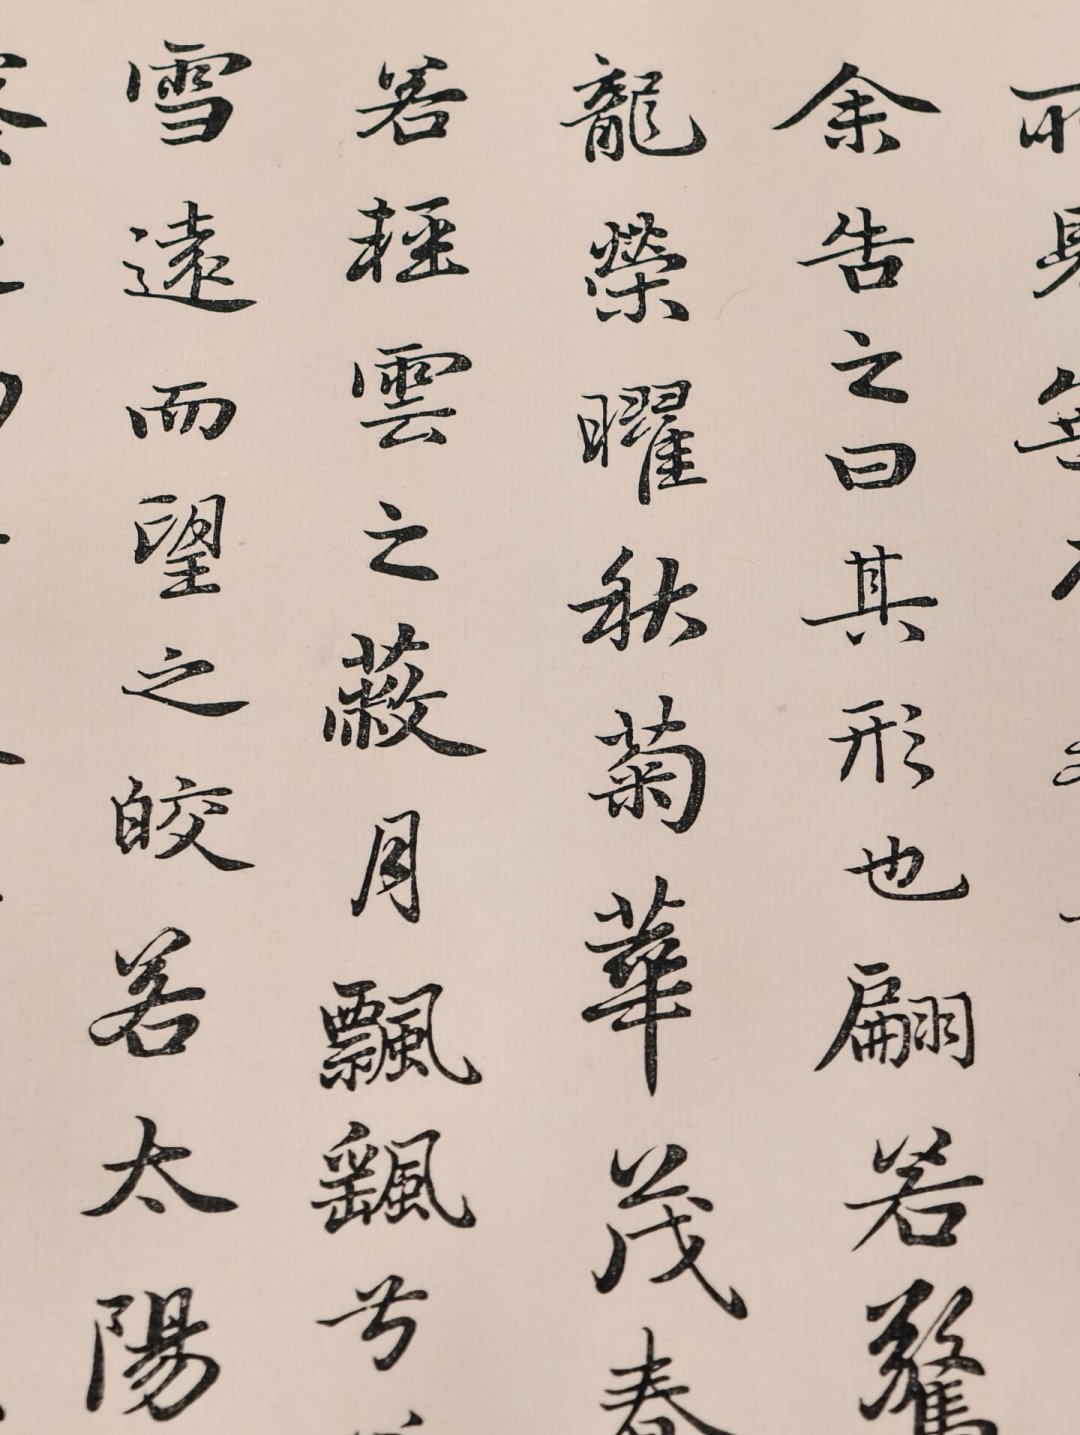 余告之曰其形也翩若驚
龍榮曜秋菊華茂春
若輕雲之蔽月飄飖兮
雪遠而望之皎若太陽